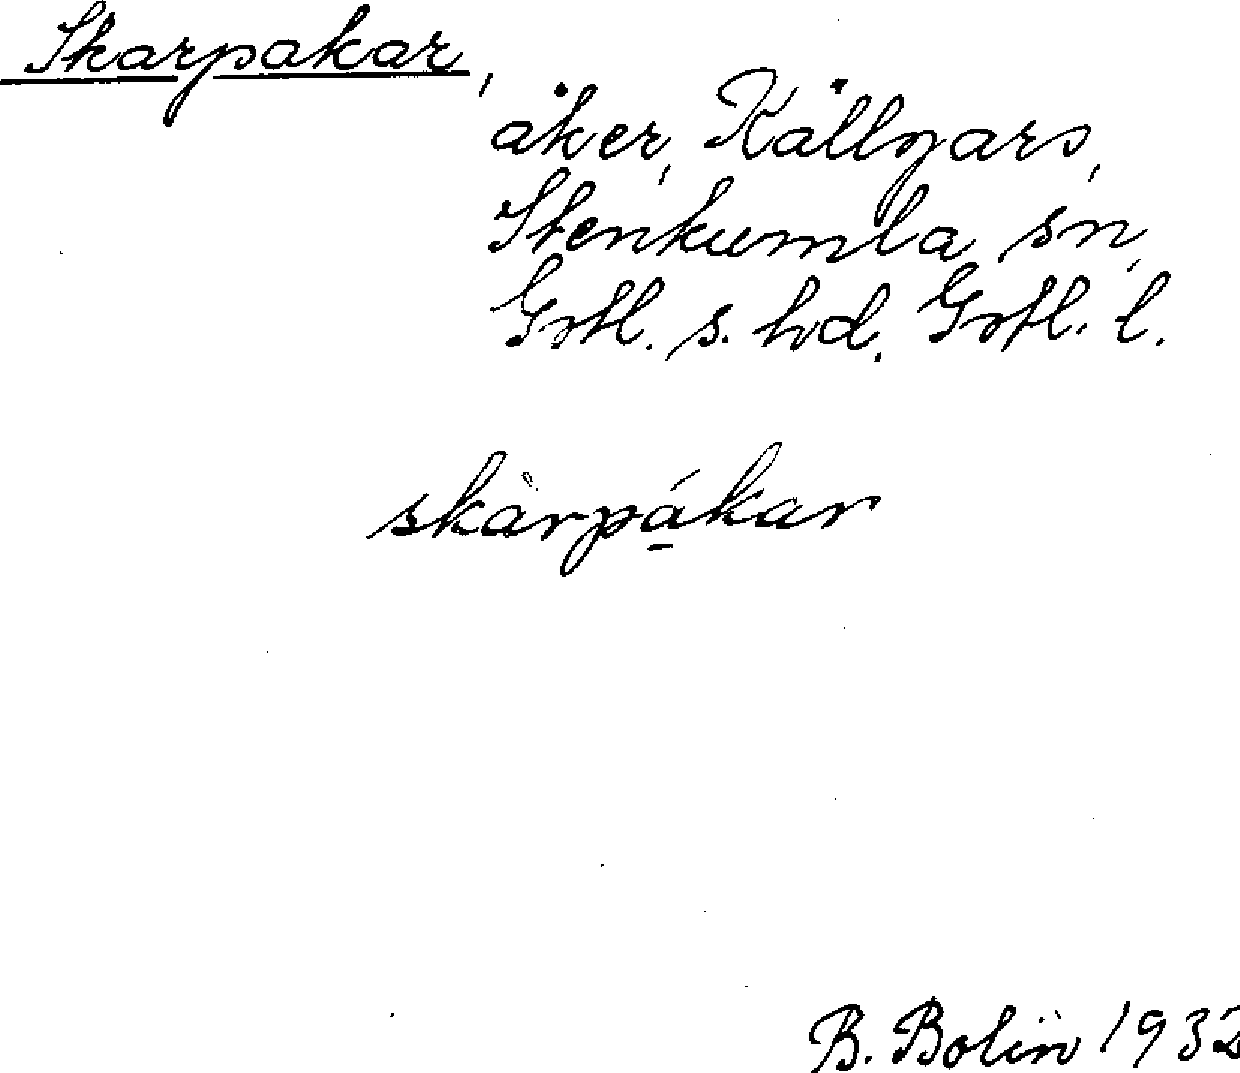 Skarpakar,
åker, Källgars,
Stenkumla sn,
Gotl. s. hd. Gotl. l.
skàrpá̱kar
B. Bolin 1932